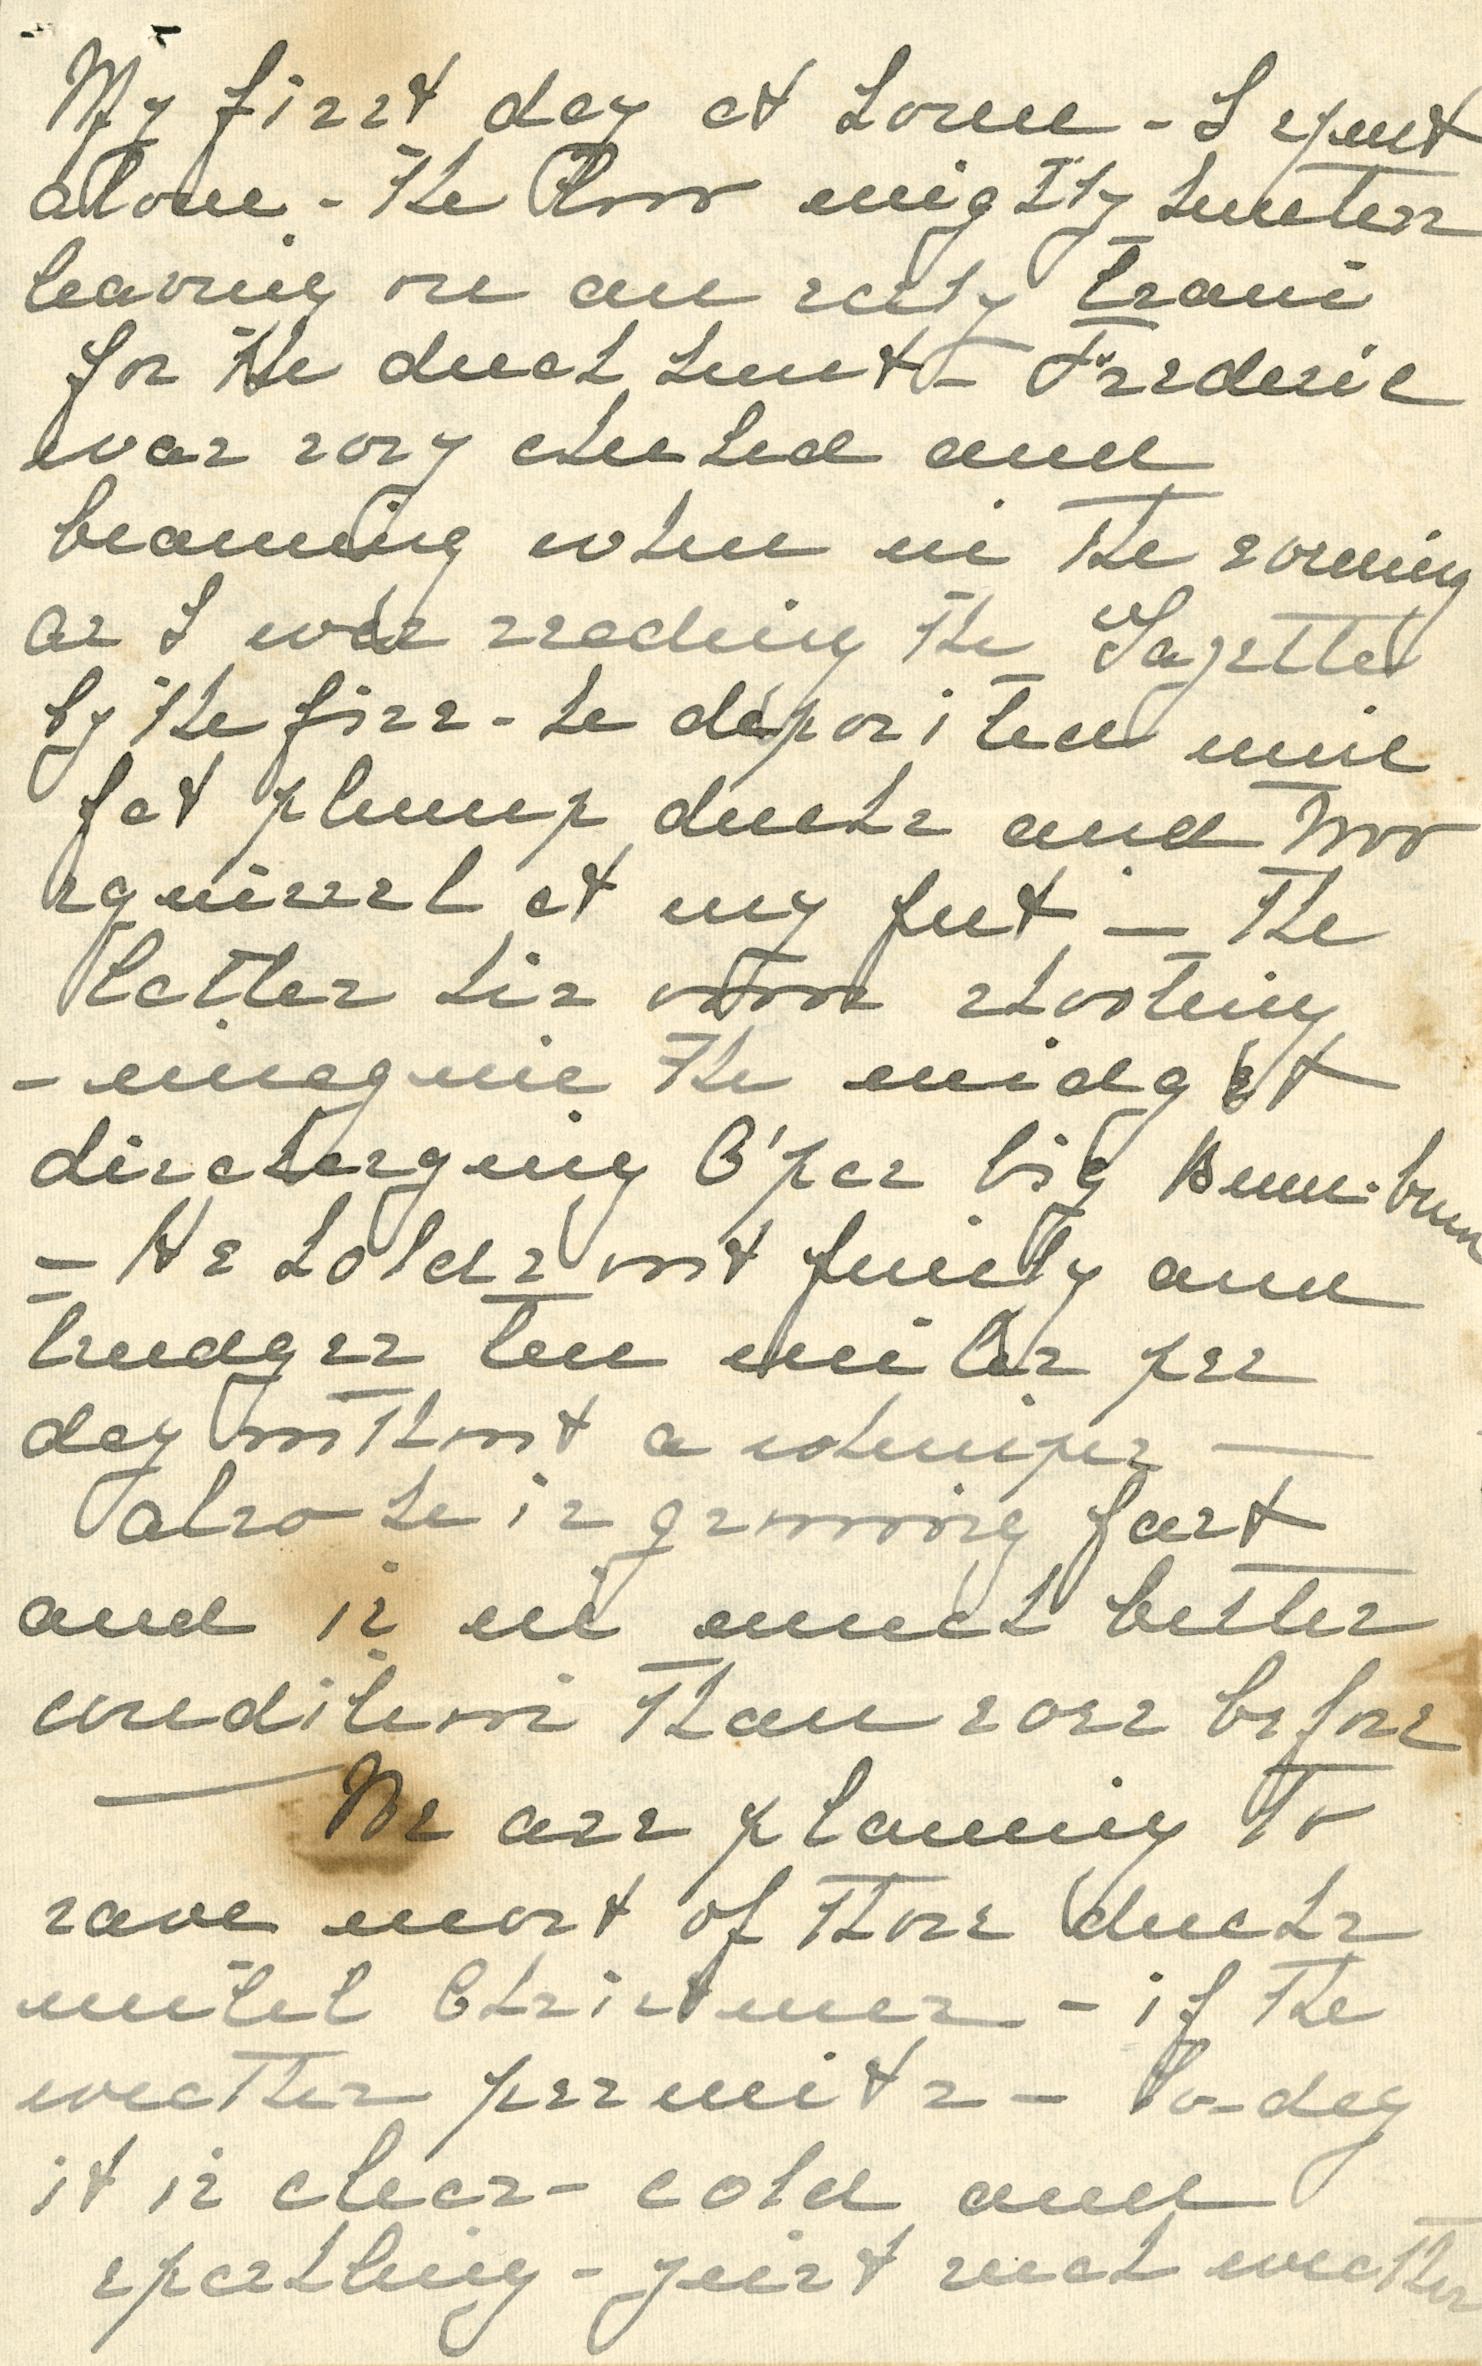 My first day at home - I spent
alone - the two mighty hunters
leaving on an early train
for the duck hunt - Frederic
was very elected and
beaming when in the evening
as I was reading the Gazette
by the fire - he deposited nine
fat plump ducks and two
squirrel at my feet - the
latter his own shooting
- imagine the midget
discharging G'pas big Bum-bum
- He holds out finely and
trudges ten miles per
day without a whimper -
also he is growing fast
and is in much better
condition than ever before
- We are planning to
save most of those ducks
until Christmas - if the
weather permits - to-day
it is clear - cold and
sparkling - just such weather